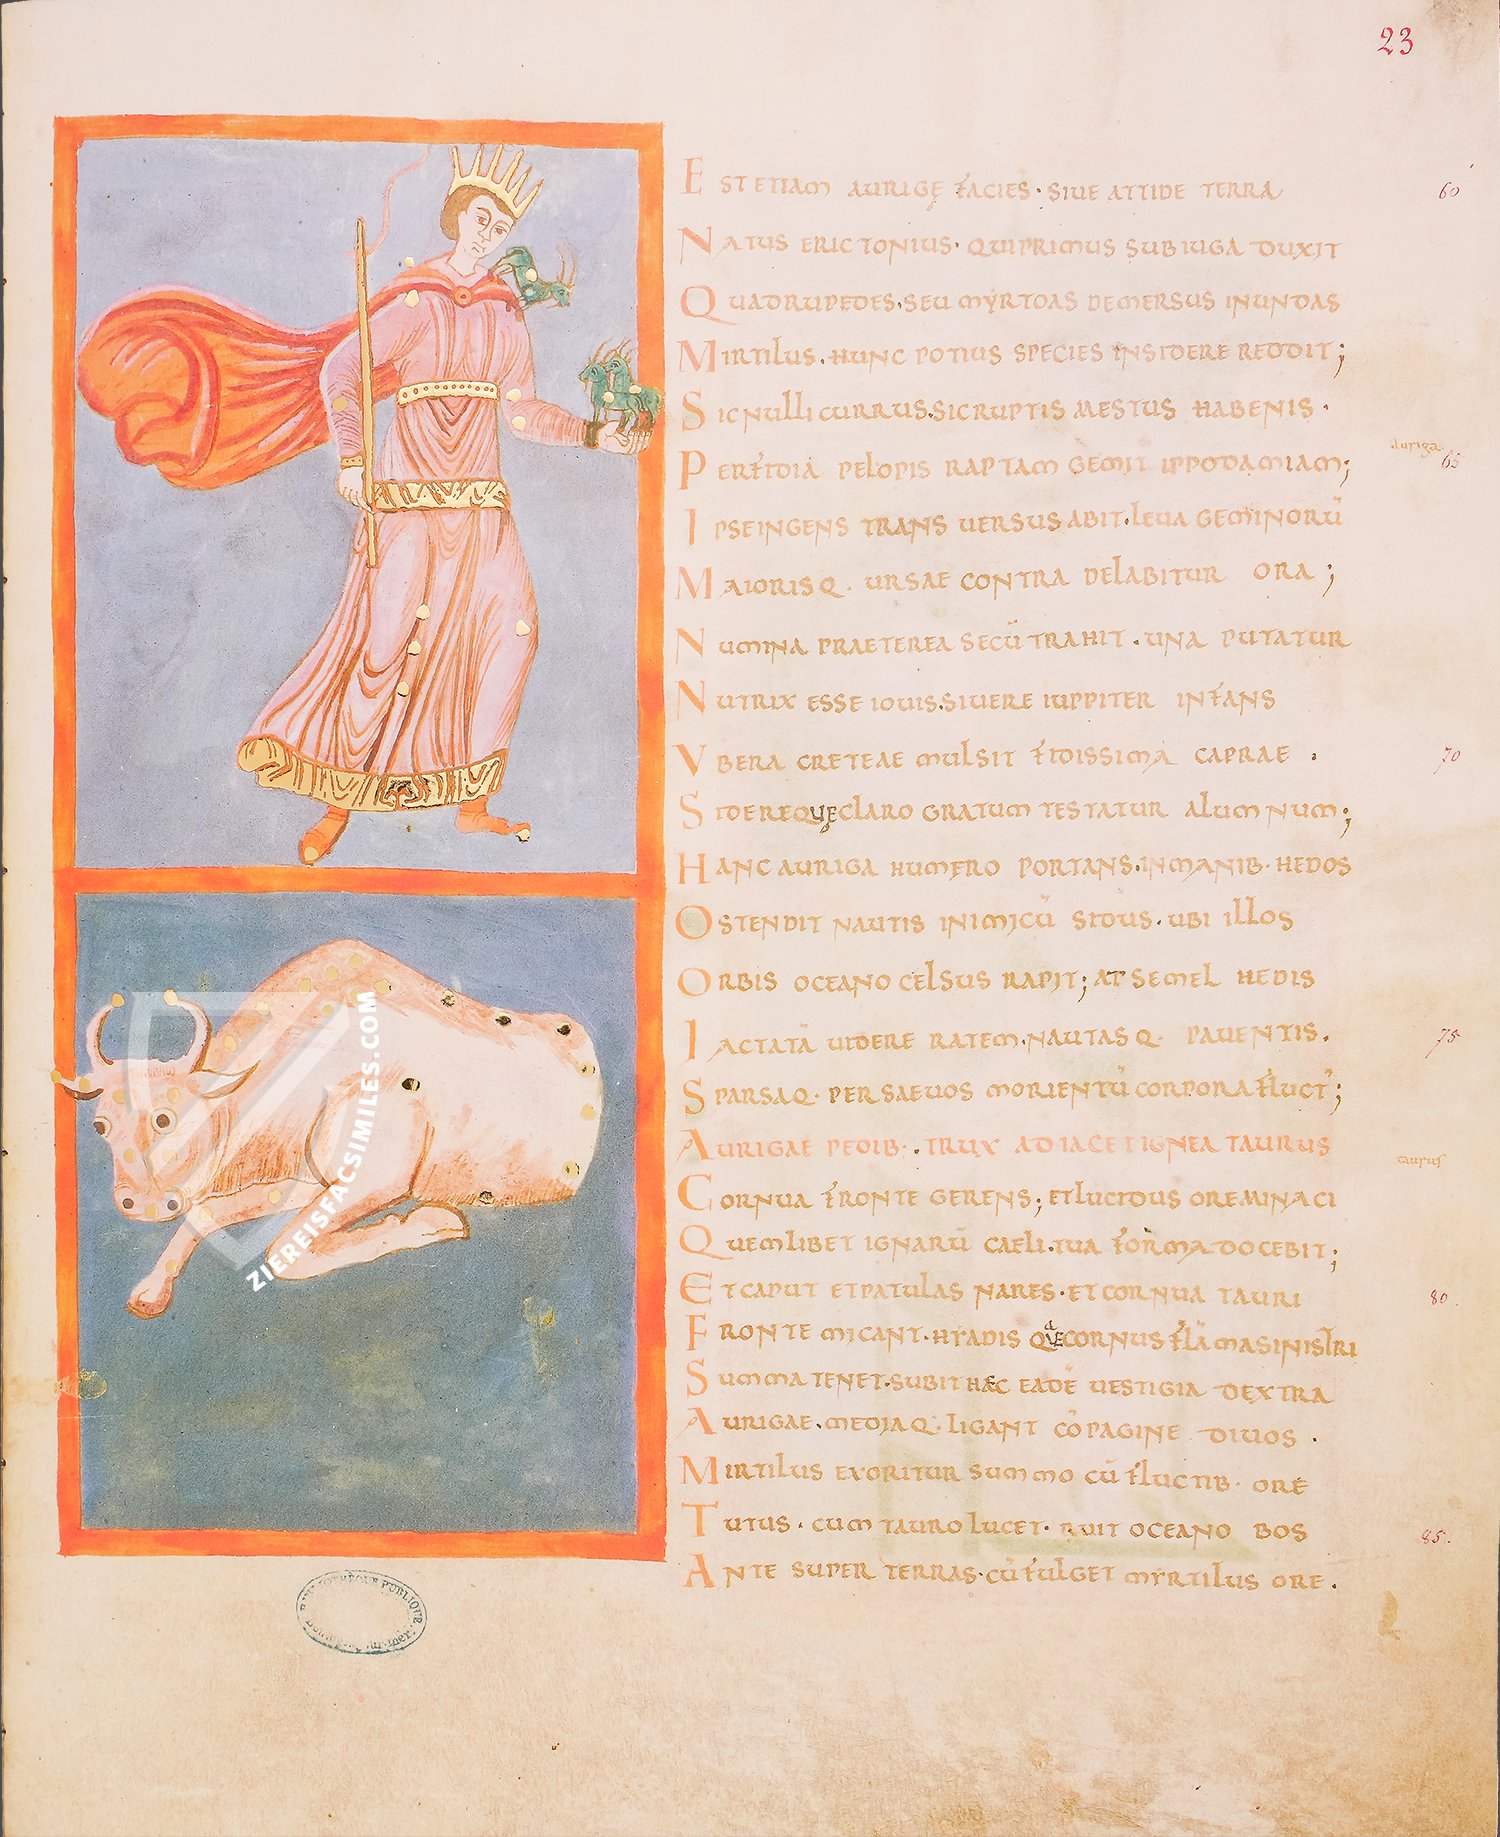 23
EST ETIAM AURIGĘ FACIES· SIUE ATTIDE TERRA
60
NATUS ERICTONIUS· QUIPRIMUS SUBIUGA DUXIT
QUADRUPEDES· SEU MYRTOAS DEMERSUS INUNDAS
MIRTILUS· HUNC POTIUS SPECIES INSIDERE REDDIT;
SICNULLI CURRUS· SICRUPTIS MESTUS HABENIS·
auriga
PERFIDIA PELOPIS RAPTAM GEMIT IPPODAMIAM;
65
IPSEINGENS TRANS UERSUS ABIT· LEUA GEMINORŪ
MAIORISQ· URSAE CONTRA DELABITUR ORA;
NUMINA PRAETEREA SECŪ TRAHIT· UNA PUTATUR
NUTRIX ESSE IOUIS· SIUERE IUPPITER INFANS
VBERA CRETEAE MULSIT FIDISSIMA CAPRAE·
70
SIDEREQUE CLARO GRATUM TESTATUR ALUMNUM;
HANC AURIGA HUMERO PORTANS· INMANIB· HEDOS
OSTENDIT NAUTIS INIMICŪ SIDUS· UBI ILLOS
ORBIS OCEANO CELSUS RAPIT; AT SEMEL HEDIS
IACTATĀ UIDERE RATEM· NAUTASQ· PAUENTIS·
75
SPARSAQ· PER SAEUOS MORIENTŪ CORPORA FLUCT';
AURIGAE PEDIB·· TRUX ADIACET IGNEA TAURUS
taurus
CORNUA FRONTE GERENS; ET LUCIDUS OREMINACI
QUEMLIBET IGNARŪ CAELI· TUA FORMA DOCEBIT;
ET CAPUT ETPATULAS NARES· ET CORNUA TAURI
80.
FRONTE MICANT· HYADIS QUE CORNUS FLĀMASINISTRI
SUMMA TENET· SUBIT HAEC EADĒ UESTIGIA DEXTRA
AURIGAE· MEDIAQ· LIGANT CŌPAGINE DIUOS·
MIRTILUS EXORITUR SUMMO CŪ FLUCTIB· ORE
TUTUS· CUM TAURO LUCET· RUIT OCEANO BOS
85.
ANTE SUPER TERRAS· CŪ FULGET MYRTILUS ORE·
ZIEREISFACSIMILES.COM
BIBLIOTHÈQUE PUBLIQUE